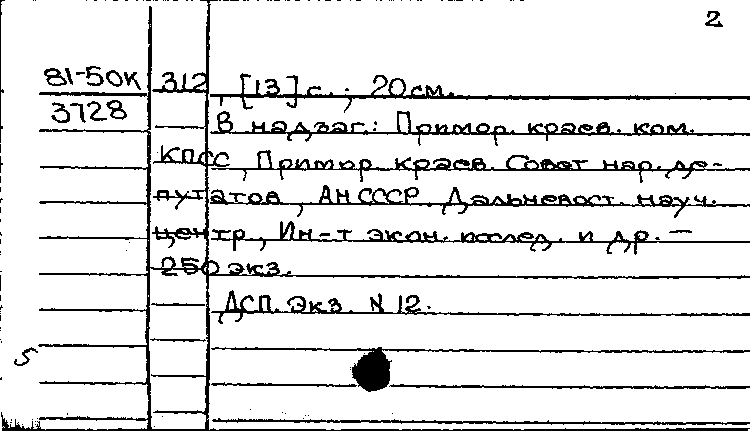 2
81-50К 312, [13] с.; 20 см.
3728
В надзаг.: Примор. краев. ком.
КПСС, Примор. краев. Совет нар. де-
путатов, АН СССР. Дальневост. науч.
центр, Ин-т экон. исслед. и др. —
250 экз.
ДСП. Экз. N 12.